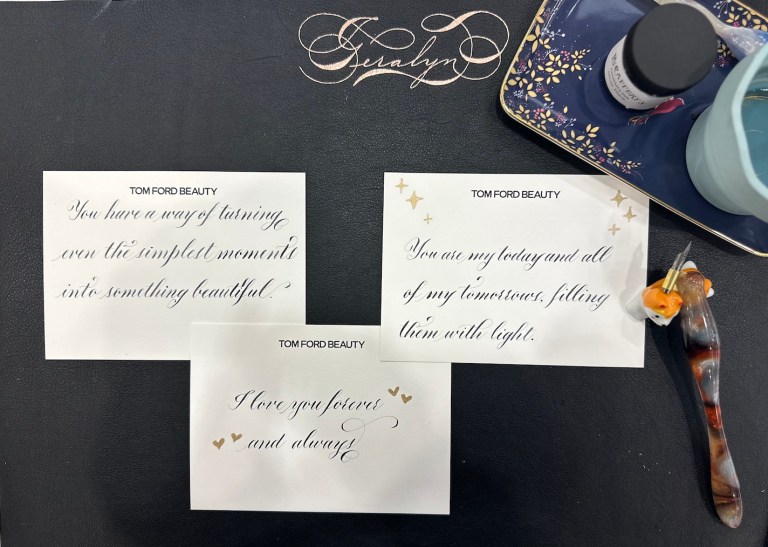 Geralyn
TOM FORD BEAUTY
You have a way of turning
even the simplest moments
into something beautiful.
TOM FORD BEAUTY
You are my today and all
of my tomorrows, filling
them with light.
TOM FORD BEAUTY
I love you forever
and always